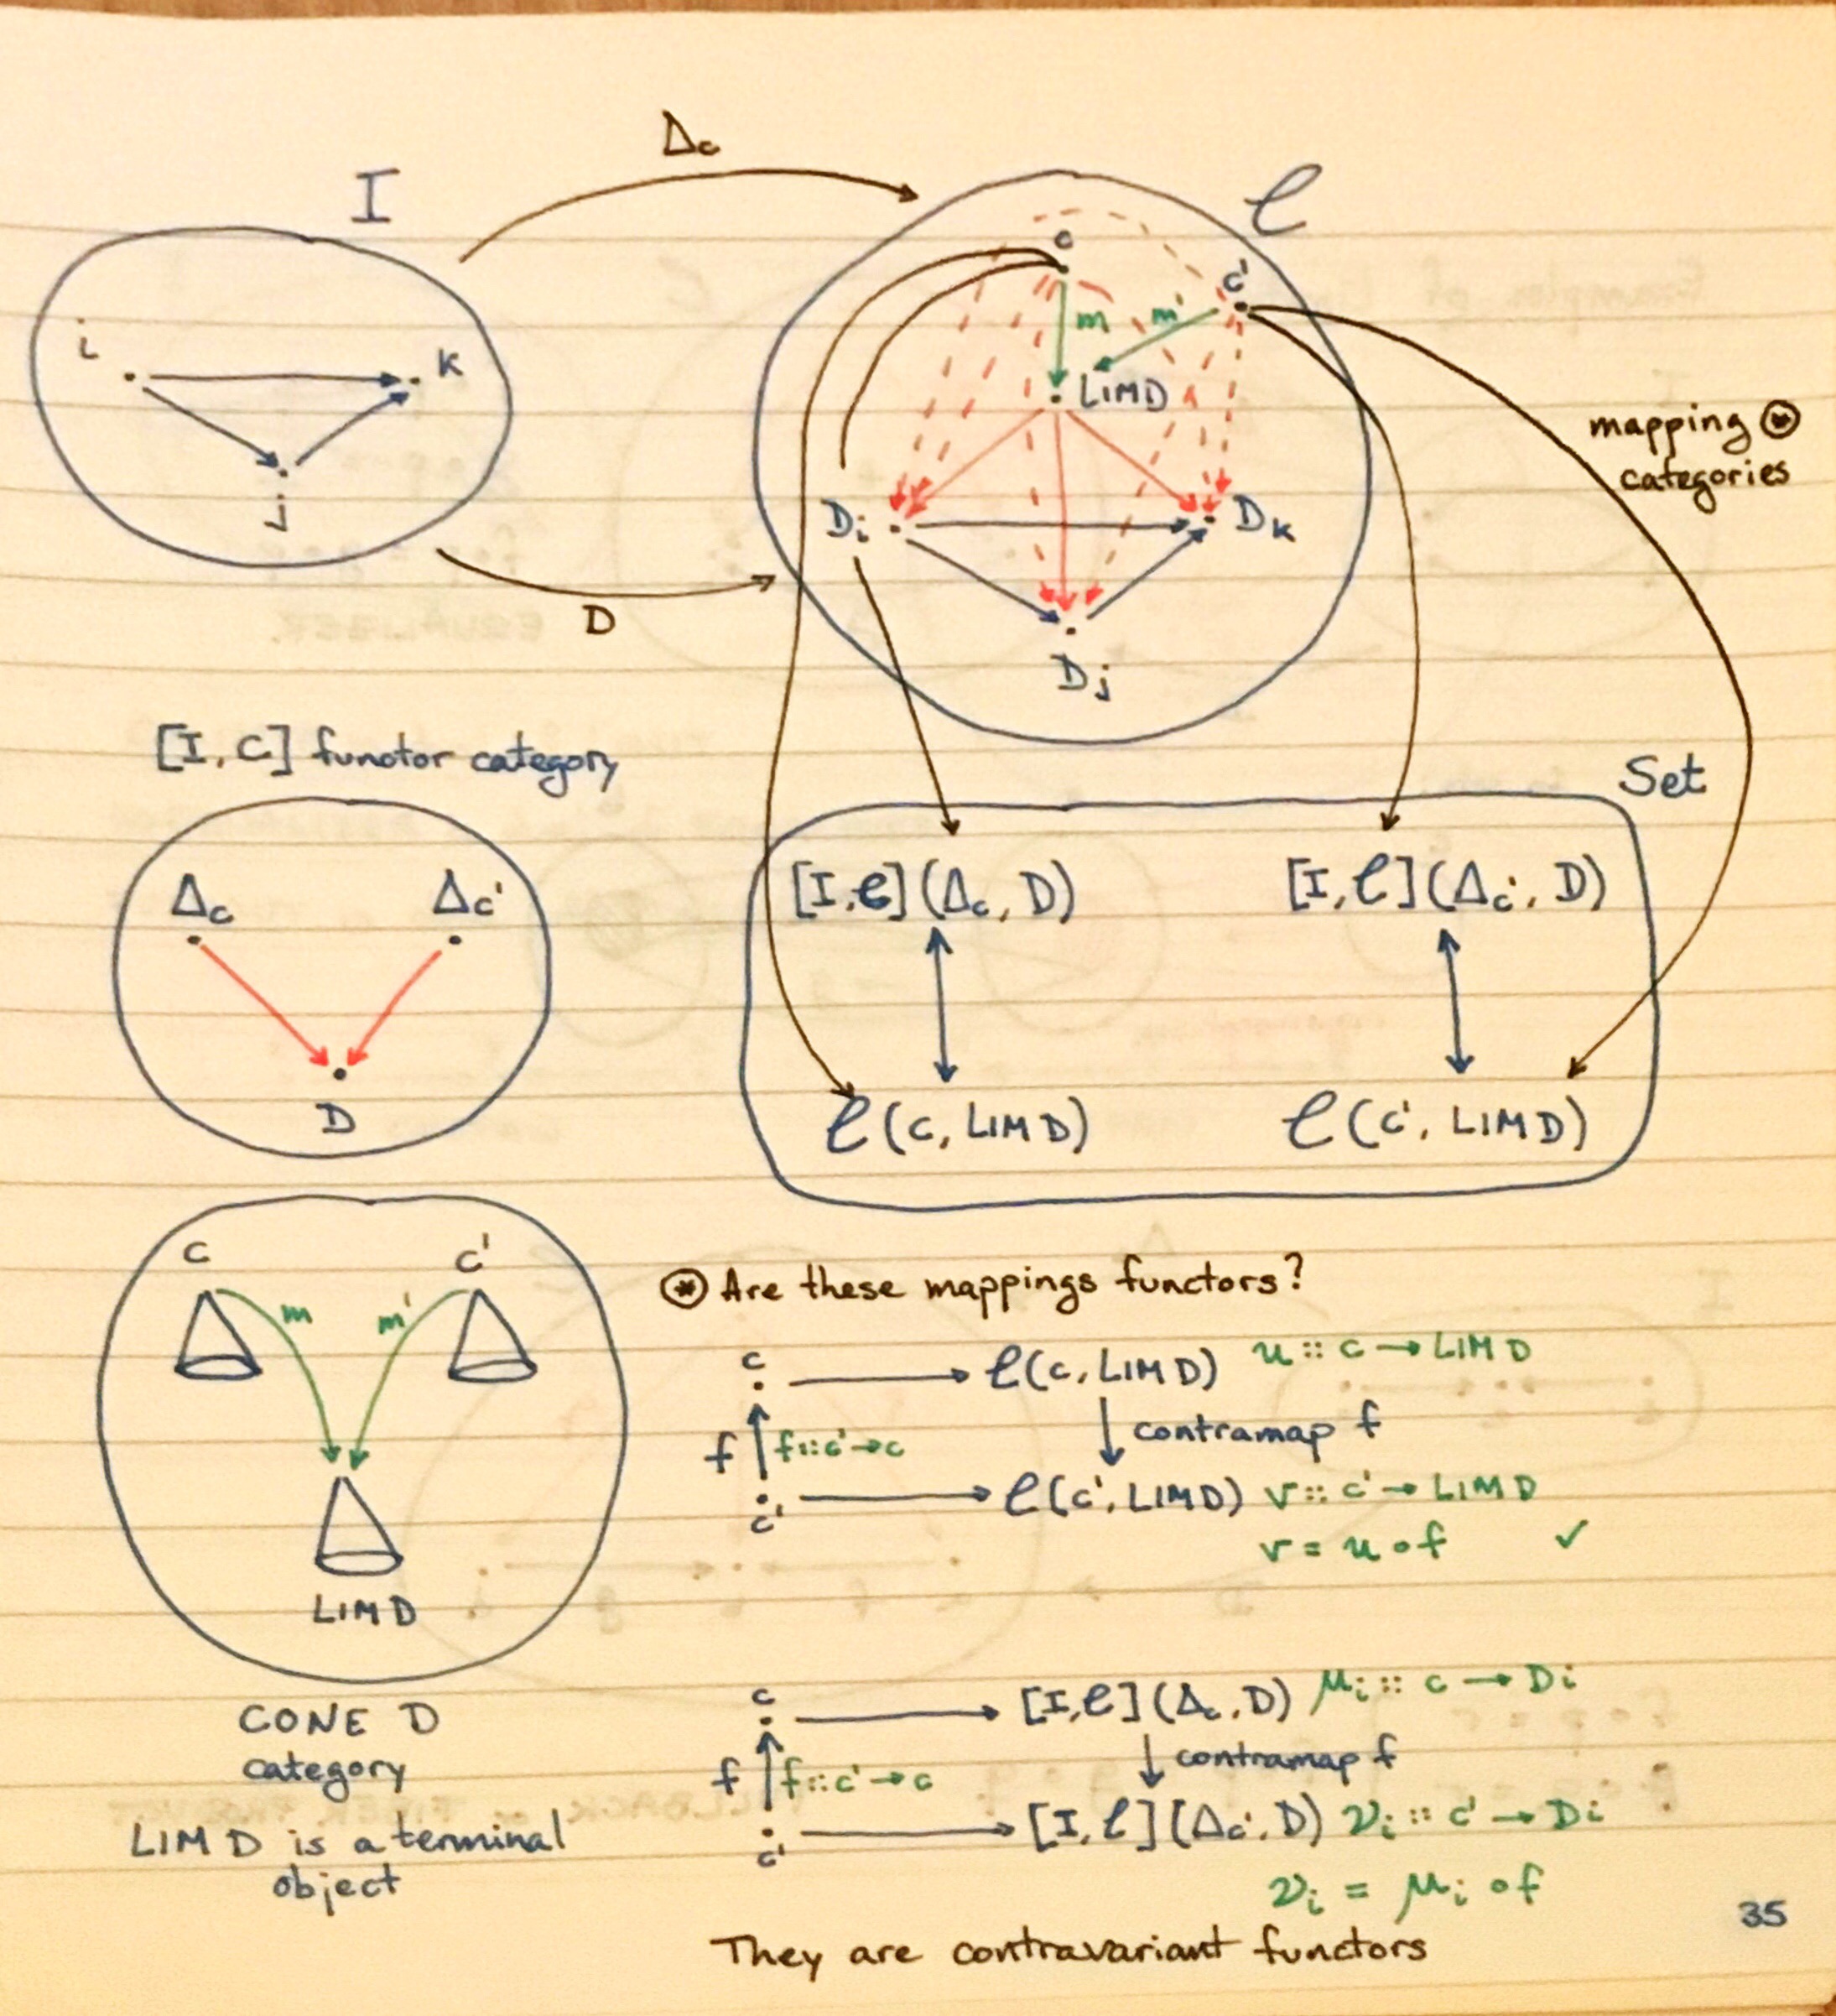 Δc
I
𝒞
c
c'
i
k
m
m'
LIM D
mapping ⊛
categories
j
Di
Dk
D
Dj
[I, C] functor category
Set
Δc
Δc'
[I,𝒞](Δc, D)
[I,𝒞](Δc', D)
D
𝒞(c, LIM D)
𝒞(c', LIM D)
c
c'
m
m'
LIM D
CONE D
category
LIM D is a terminal
object
⊛ Are these mappings functors?
c
𝒞(c, LIM D) u :: c → LIM D
f
f :: c' → c
contramap f
c'
𝒞(c', LIM D) v :: c' → LIM D
v = u ∘ f ✓
c
[I,𝒞](Δc, D) μi :: c → Di
f
f :: c' → c
contramap f
c'
[I,𝒞](Δc', D) νi :: c' → Di
νi = μi ∘ f
35
They are contravariant functors